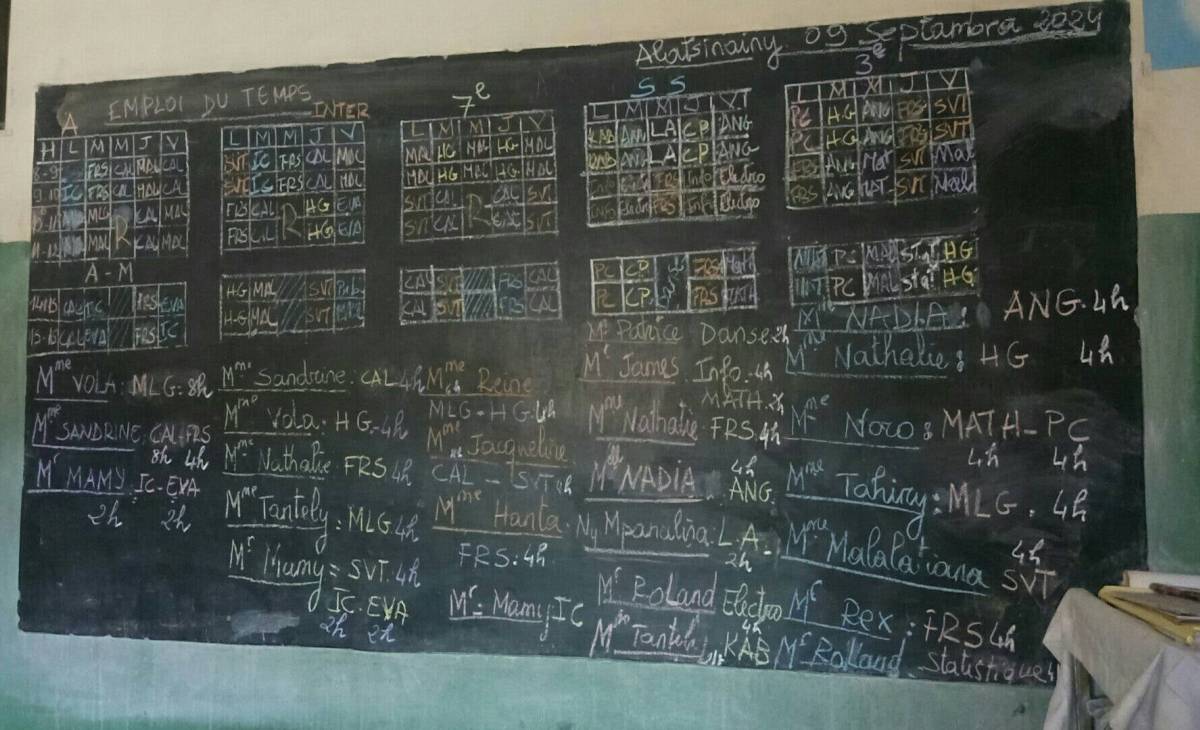 Alatsinainy 09 Septambra 2024
EMPLOI DU TEMPS
A
H L M M J V
FRS CAL MAL CAL
9-10 IC FRS CAL MAL CAL
MLG R CAL MAL
11-12 MAL CAL MAL
A-M
14-15 CAL IC FRS EVA
15-16 CAL EVA FRS IC
Mme VOLA: MLG: 8h
Mme SANDRINE: CAL-FRS
8h 4h
Mr MAMY: IC-EVA
2h 2h
INTER
L M M J V
SVT IC FRS CAL MAL
SVT IC FRS CAL MAL
FRS CAL R HG EVA
FRS CAL HG EVA
HG MAL SVT
HG MAL SVT
Mme Sandrine: CAL 4h
Mme Vola: HG-4h
Mme Nathalie FRS 4h
Mme Tantely: MLG 4h
Mr Mamy = SVT. 4h
IC-EVA
2h 2h
7e
L M M J V
MAL HG MAL HG MAL
MAL HG MAL HG MAL
SVT CAL R CAL SVT
SVT CAL CAL SVT
CAL SVT FRS CAL
CAL SVT FRS CAL
Mme Reine
MLG-HG 4h
Mme Jacqueline
CAL - SVT
Mme Hanta
FRS: 4h
Mr. Mamy IC
S S
L M M J V
KAB ANG LA CP ANG
KAB ANG LA CP ANG
Info Electro FRS Info Electro
Info Electro FRS Info Electro
PC CP FRS MATH
PC CP FRS MATH
Mr Patrice Danse 2h
Mr James: Info. 4h
MATH. 2h
Mme Nathalie: FRS. 4h
NADIA: 4h
ANG.
Ny Mpanalina: L.A.
2h
Mr Roland Electro
4h
Tantely KAB
3e
L M M J V
PC HG ANG FRS SVT
PC HG ANG FRS SVT
FRS ANG Mat SVT Mal
FRS ANG MAT SVT Mal
MAT PC MAL stat HG
MAT PC MAL stat HG
NADIA: ANG. 4h
Mme Nathalie: HG 4h
Mme Noro: MATH-PC
4h 4h
Mme Tahiry: MLG. 4h
Mme Malalatiana 4h
SVT
Mr Rex: FRS 4h
Mr Rolland Statistique